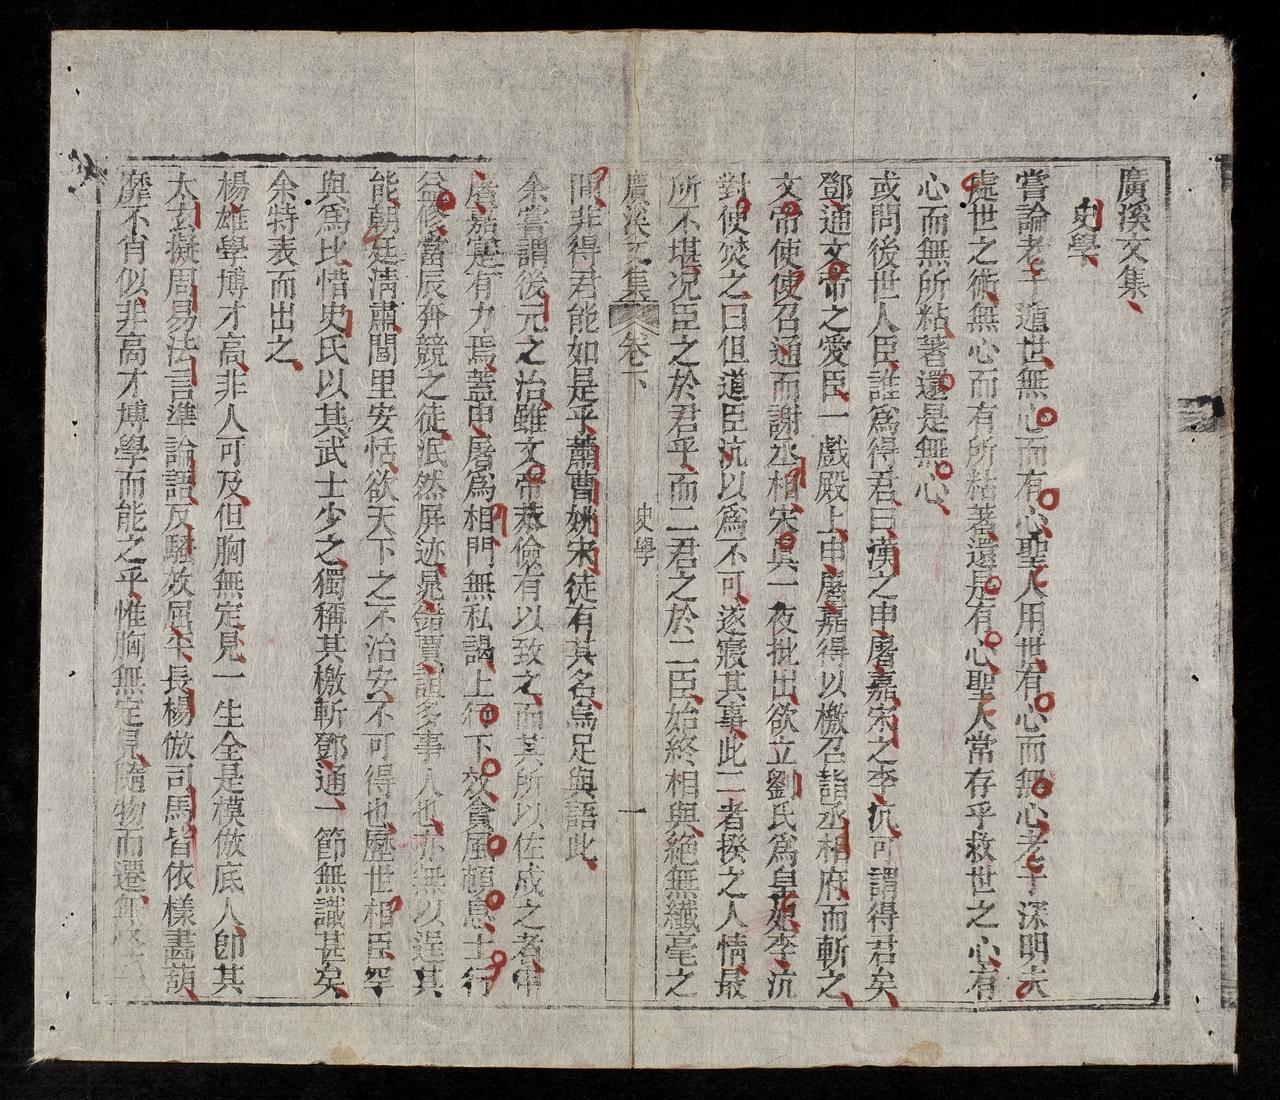 廣溪文集
史學
嘗論老子遁世無心而有心聖人用世有心而無心老子深明夫
處世之術無心而有所粘著還是有心聖人常存乎救世之心有
心而無所粘著還是無心
或問後世人臣誰爲得君曰漢之申屠嘉宋之李沆可謂得君矣
鄧通文帝之愛臣一戲殿上申屠嘉得以檄召詣丞相府而斬之
文帝使使召通而謝丞相宋眞一夜批出欲立劉氏爲皇妃李沆
對使焚之曰但道臣沆以爲不可遂寢其事此二者揆之人情最
所不堪况臣之於君乎而二君之於二臣始終相與絶無纖毫之
廣溪文集 卷下 史學 一
間非得君能如是乎蕭曹姚宋徒有其名烏足與語此
余嘗謂後元之治雖文帝恭儉有以致之而其所以佐成之者申
屠嘉寔有力焉蓋申屠爲相門無私謁上行下效貪風頓息士行
益修當辰奔競之徒泯然屏迹晁錯賈誼多事人也亦無以逞其
能朝廷清肅閭里安恬欲天下之不治安不可得也歷世相臣罕
與爲比惜史氏以其武士少之獨稱其檄斬鄧通一節無識甚矣
余特表而出之
楊雄學博才高非人可及但胸無定見一生全是模倣底人卽其
太玄擬周易法言準論語反騷效屈平長楊倣司馬皆依樣畵葫
靡不肖似非高才博學而能之乎惟胸無定見隨物而遷無